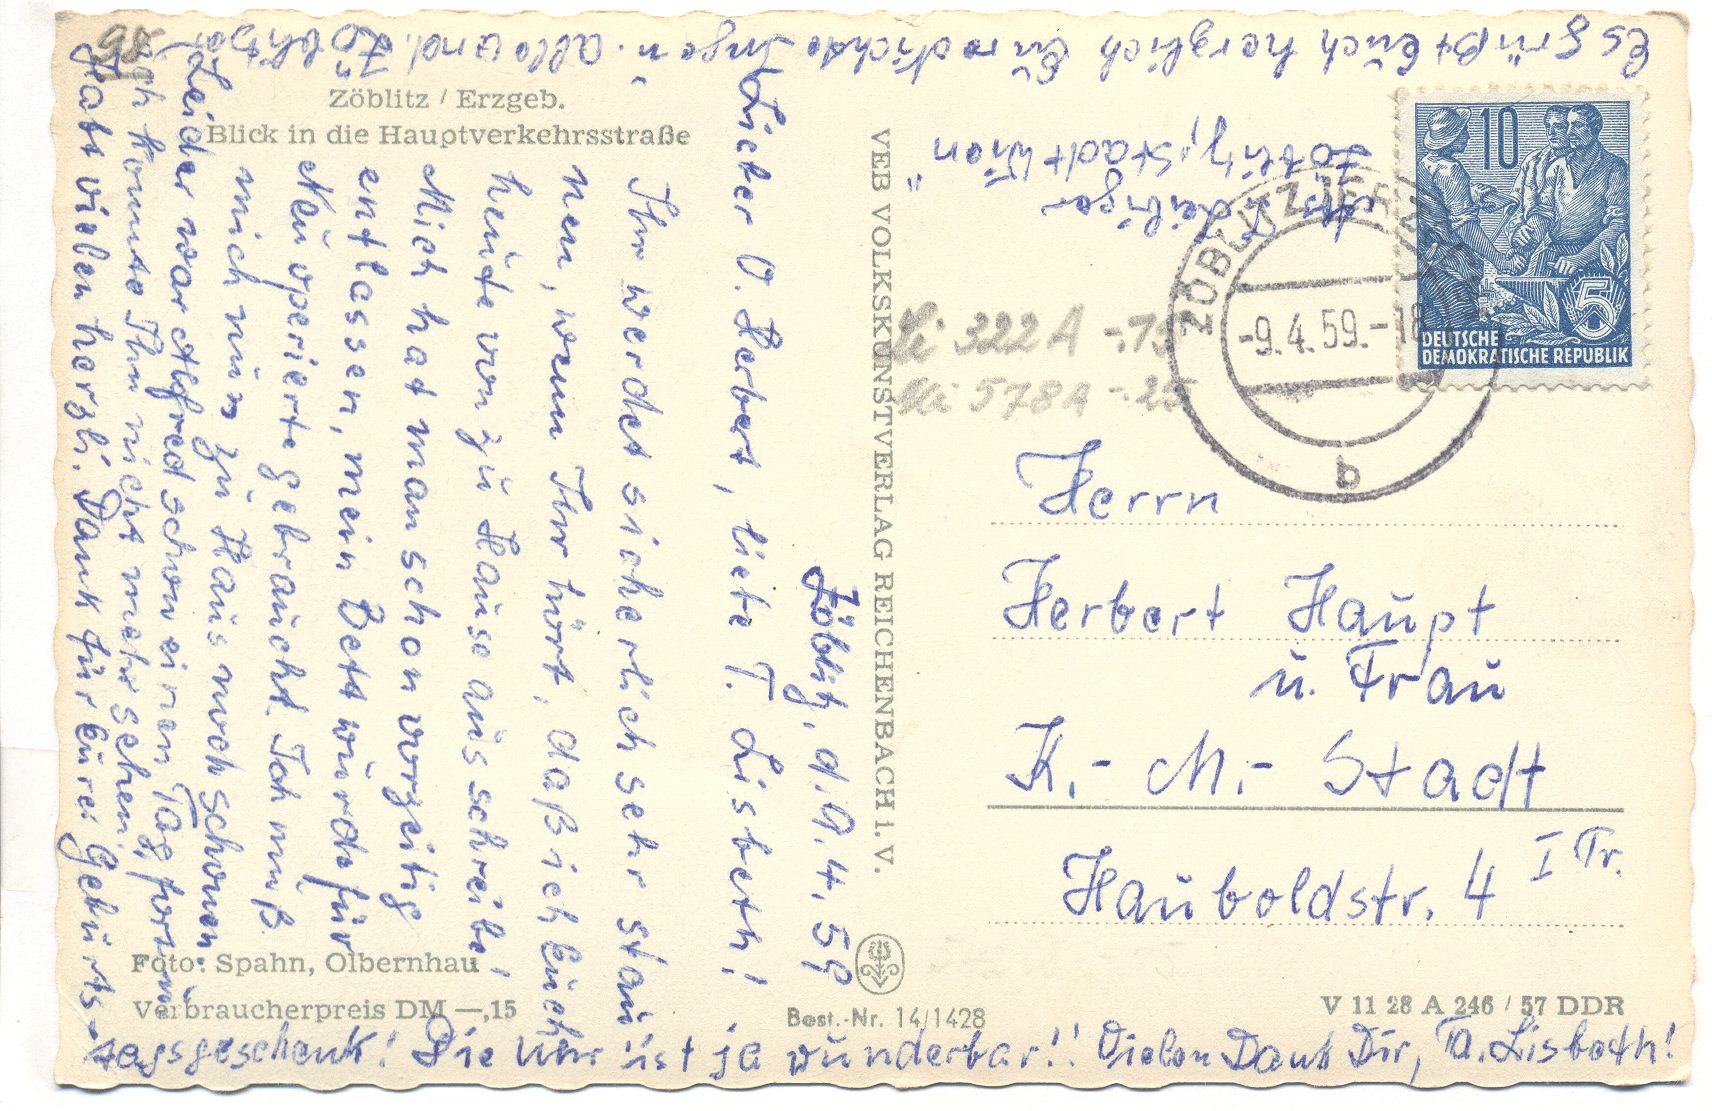 Zöblitz / Erzgeb.
Blick in die Hauptverkehrsstraße
Zöblitz, d. 9. 4. 59
Lieber O. Herbert, liebe T. Lisbeth!
Ihr werdet sicherlich sehr stau-
nen, wenn Ihr hört, daß ich Euch
heute von zu Hause aus schreibe!
Mich hat man schon vorzeitig
entlassen, mein Bett wurde für
Neuoperierte gebraucht. Ich muß
mich nun zu Haus noch schonen.
Leider war Alfred schon einen Tag fort u.
ich konnte Ihn nicht mehr sehen,
Habt vielen herzl. Dank für Eure Geburts-
tagsgeschenk! Die Uhr ist ja wunderbar!! Vielen Dank Dir, Ta. Lisbeth!
Es grüßt Euch herzlich Eure
alle and. Zöblitzer
Leibiger
Zöblitz, "Stadt Wien"
VEB VOLKSKUNSTVERLAG REICHENBACH i. V.
10
5
DEUTSCHE
DEMOKRATISCHE REPUBLIK
ZÖBLITZ
-9.4.59.-18
b
Mi 322 A -.75
Mi 578 A -.25
Herrn
Herbert Haupt
u. Frau
K.-M.-Stadt
Hauboldstr. 4 I Tr.
Foto: Spahn, Olbernhau
Verbraucherpreis DM —,15
Best.-Nr. 14/1428
V 11 28 A 246 / 57 DDR